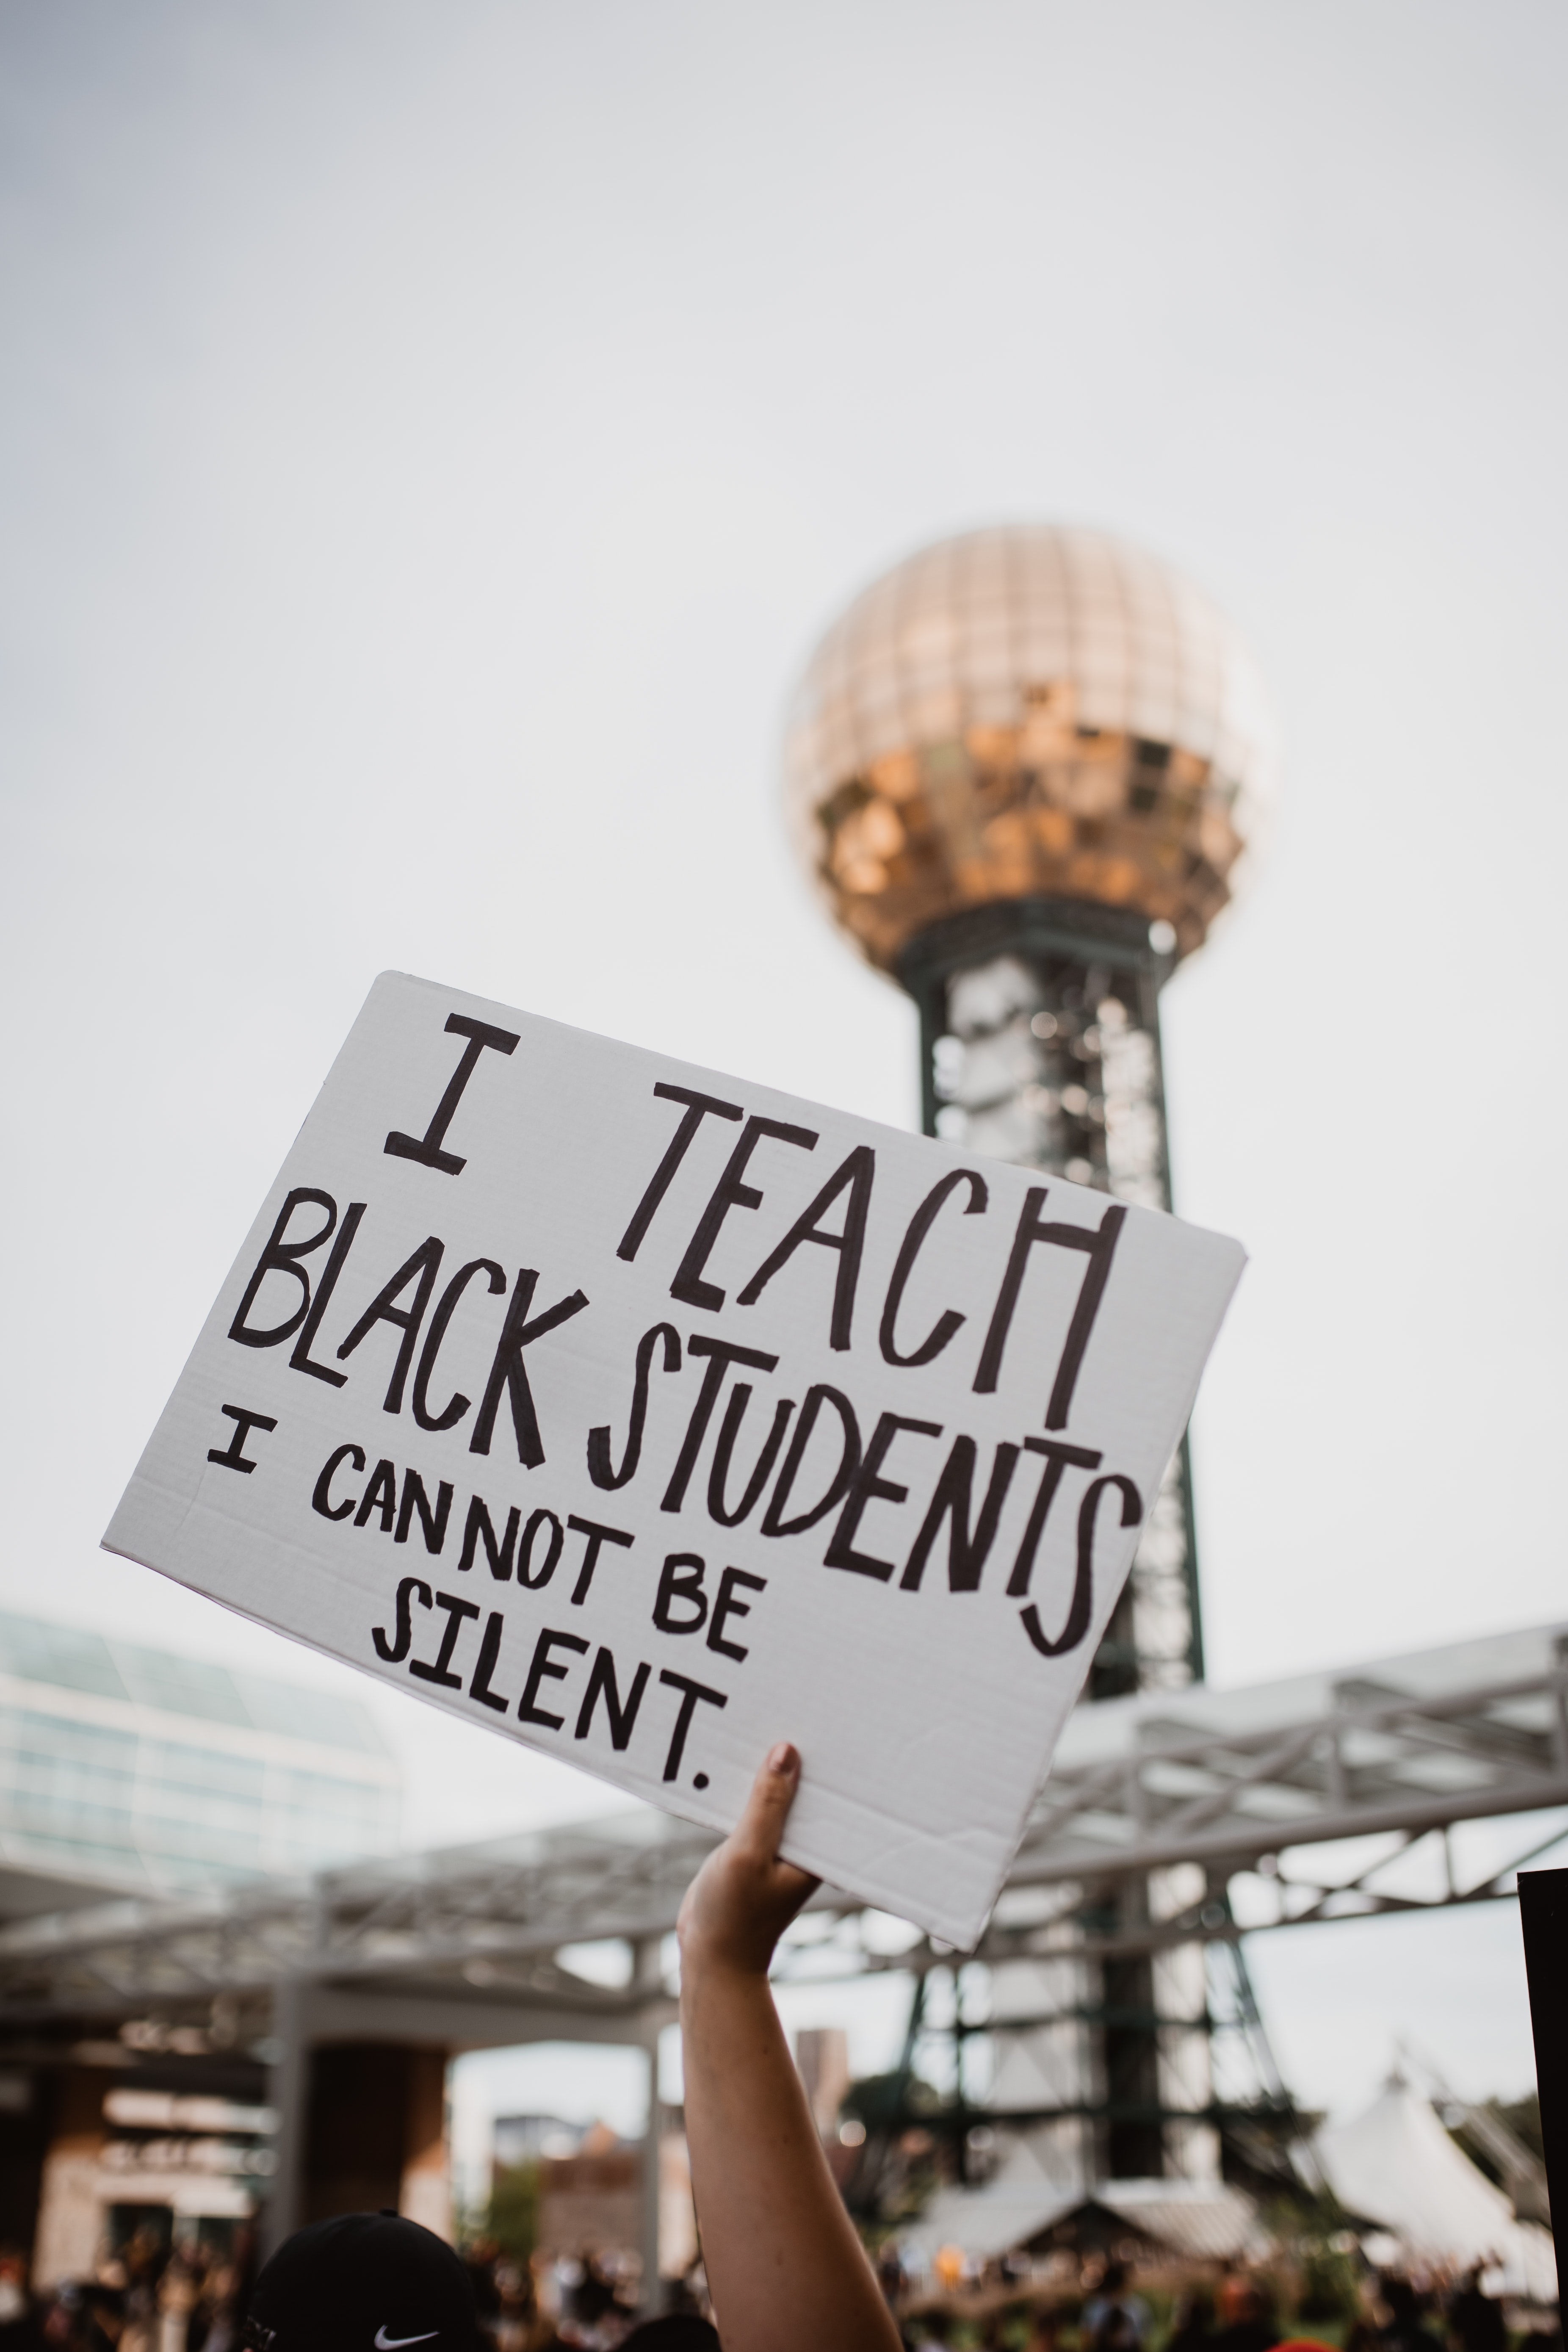 I TEACH
BLACK STUDENTS
I CANNOT BE
SILENT.